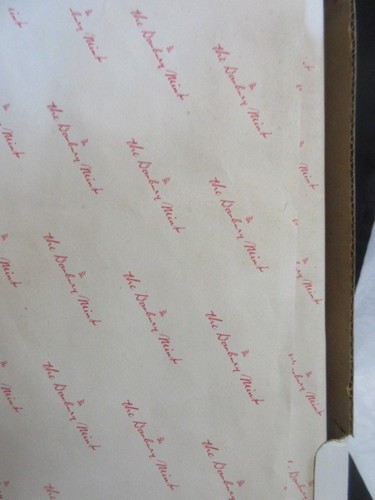 Mint
the Danbury Mint
the Danbury Mint
the Danbury Mint
the Danbury Mint
the Danbury Mint
Mint
the Danbury Mint
the Danbury Mint
the Danbury Mint
the Danbury Mint
bury Mint
the Danbury Mint
the Danbury Mint
the Danbury
Danbury
the